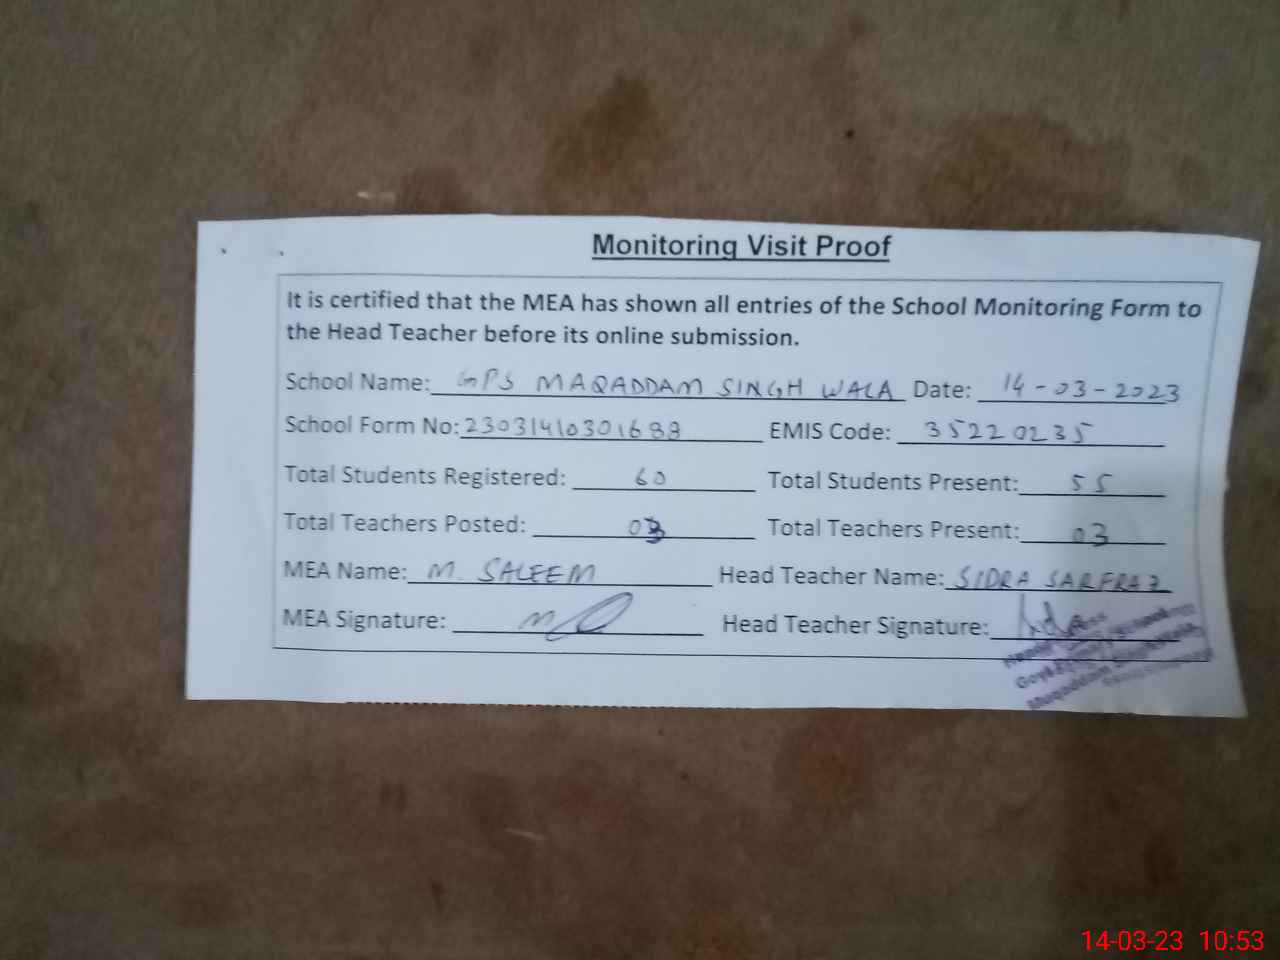 Monitoring Visit Proof
It is certified that the MEA has shown all entries of the School Monitoring Form to
the Head Teacher before its online submission.
School Name: GPS MAQADDAM SINGH WALA Date: 14-03-2023
School Form No: 23031410301688 EMIS Code: 35220235
Total Students Registered: 60 Total Students Present: 55
Total Teachers Posted: 03 Total Teachers Present: 03
MEA Name: M. SALEEM Head Teacher Name: SIDRA SARFRAZ
MEA Signature: Head Teacher Signature:
14-03-23 10:53